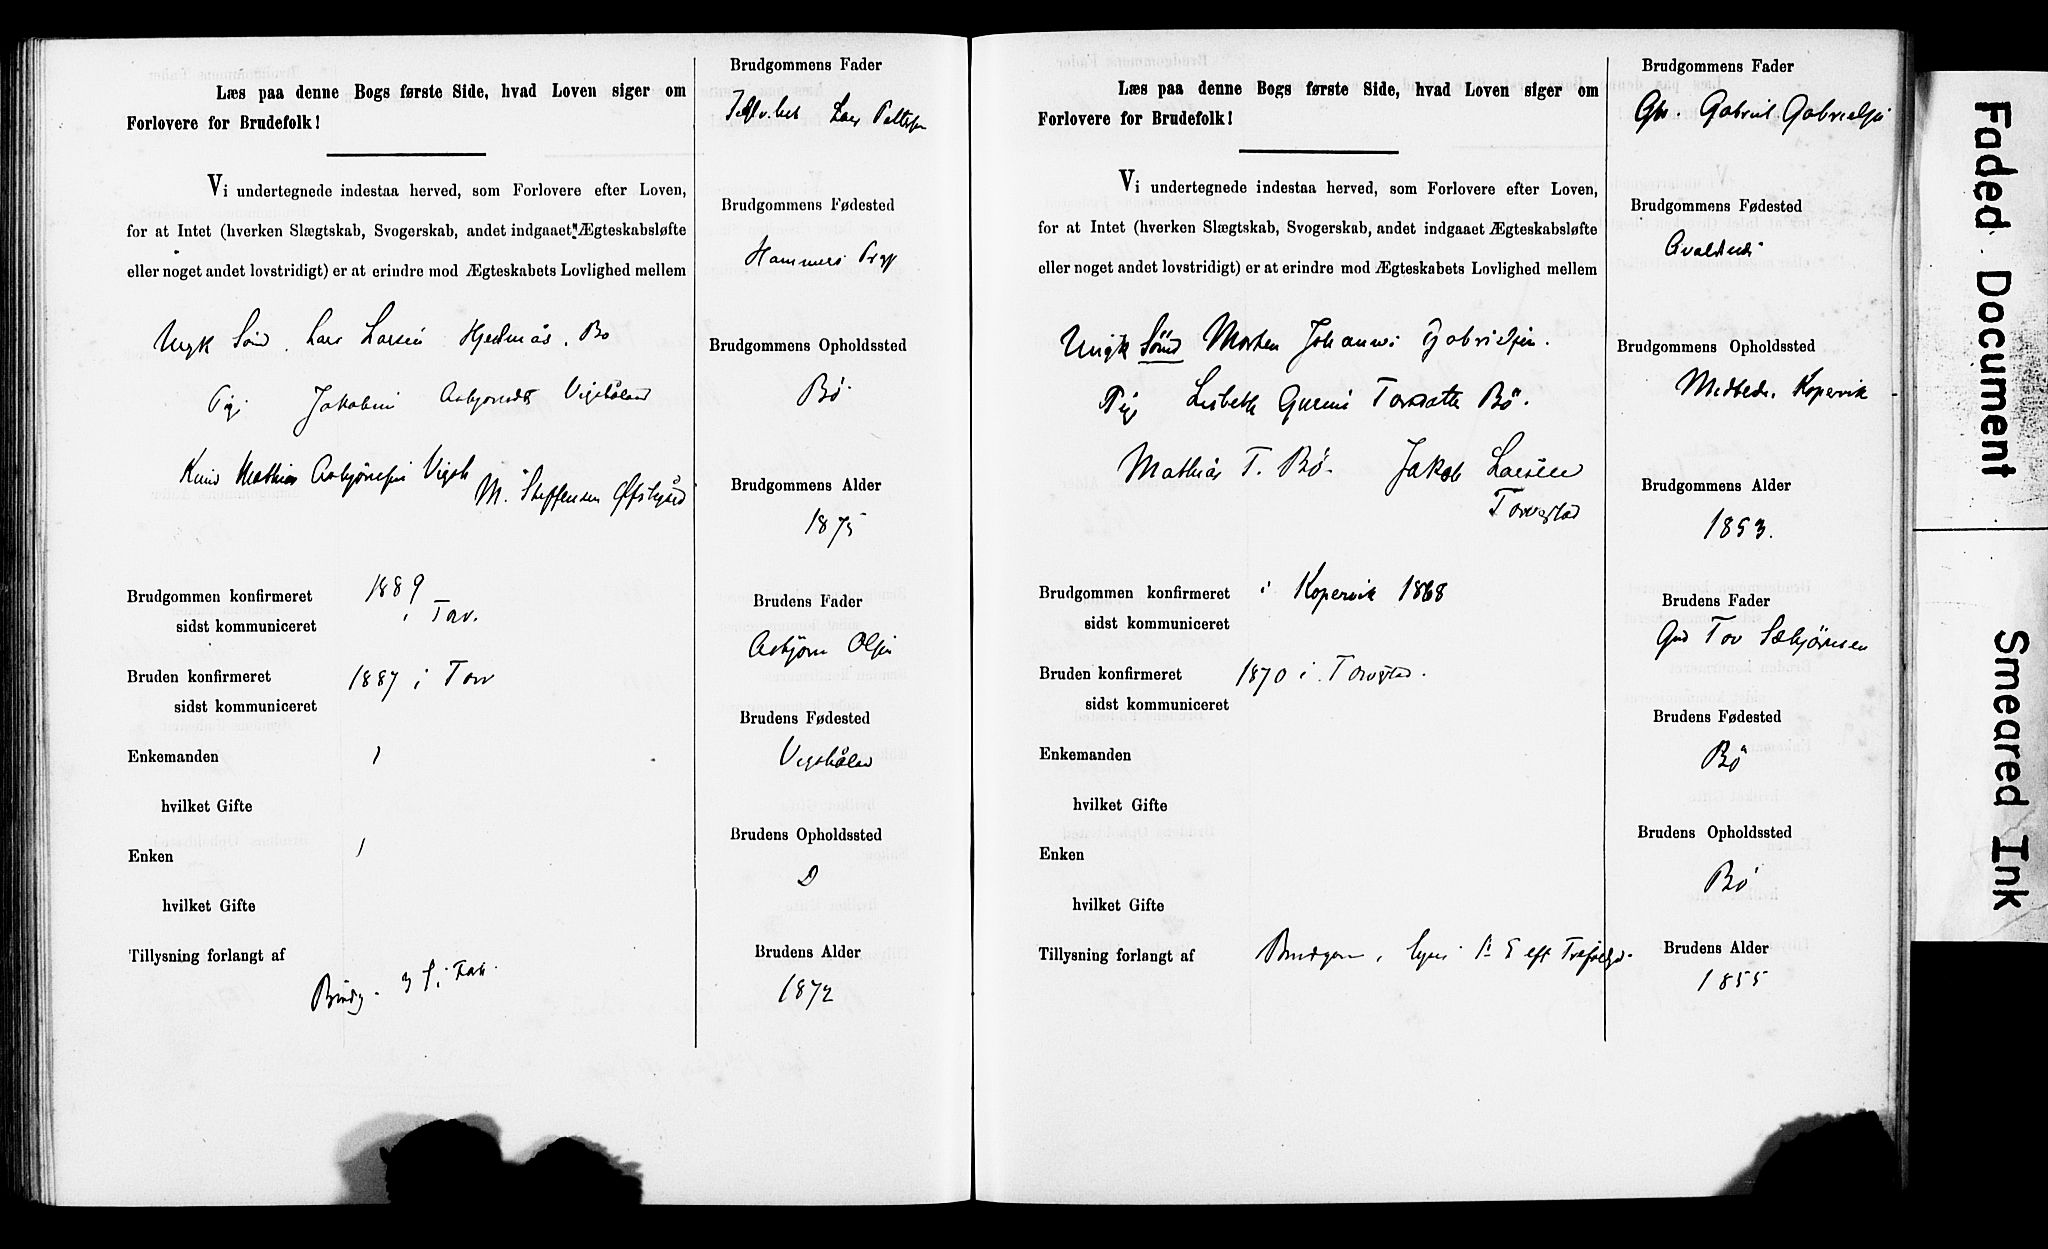 Læs paa denne Bogs første Side, hvad Loven siger om
Forlovere for Brudefolk!
Vi undertegnede indestaa herved, som Forlovere efter Loven,
for at Intet (hverken Slægtskab, Svogerskab, andet indgaaet Ægteskabsløfte
eller noget andet lovstridigt) er at erindre mod Ægteskabets Lovlighed mellem
Ungk Lars Larsen Bø
Pig Jakobine Vigshåland
Knud Mathias Asbjørnsen Vigsh
M. Steffensen
Brudgommen konfirmeret 1889
sidst kommuniceret i Tor.
Bruden konfirmeret 1887 i Torv
sidst kommuniceret
Enkemanden
hvilket Gifte
Enken
hvilket Gifte
Tillysning forlangt af
Brudg. 3 i
Brudgommens Fader
Lars
Brudgommens Fødested
Hammers
Brudgommens Opholdssted
Bø
Brudgommens Alder
1875
Brudens Fader
Asbjørn Olsen
Brudens Fødested
Vigshåland
Brudens Opholdssted
D
Brudens Alder
1872
Læs paa denne Bogs første Side, hvad Loven siger om
Forlovere for Brudefolk!
Vi undertegnede indestaa herved, som Forlovere efter Loven,
for at Intet (hverken Slægtskab, Svogerskab, andet indgaaet Ægteskabsløfte
eller noget andet lovstridigt) er at erindre mod Ægteskabets Lovlighed mellem
Ungk Morten Johannes Gabrielsen.
Pig Lisbeth Gurine Torsdatter Bø.
Mathias T. Bø. Jakob Larsen
Torvestad
Brudgommen konfirmeret i Kopervik 1868
sidst kommuniceret
Bruden konfirmeret 1870 i Torvstad.
sidst kommuniceret
Enkemanden
hvilket Gifte
Enken
hvilket Gifte
Tillysning forlangt af Brudgom
Brudgommens Fader
Gabriel Gabrielsen
Brudgommens Fødested
Avaldsnes
Brudgommens Opholdssted
Kopervik
Brudgommens Alder
1853.
Brudens Fader
Grd Tov Sæbjørnsen
Brudens Fødested
Bø
Brudens Opholdssted
Bø
Brudens Alder
1855
Faded Document
Smeared Ink